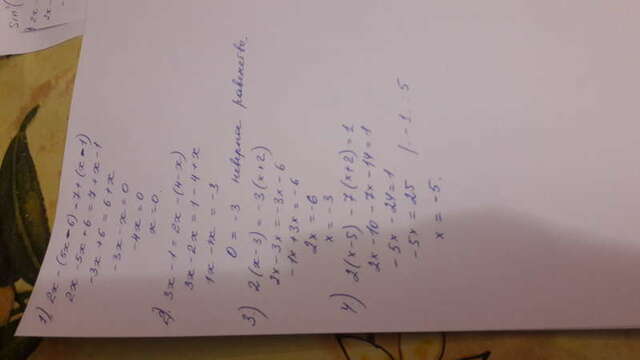 1) 2x - (5x - 6) = 7 + (x - 1)
2x - 5x + 6 = 7 + x - 1
-3x + 6 = 6 + x
-3x - x = 0
-4x = 0
x = 0.
2) 3x - 1 = 2x - (4 - x)
3x - 2x = 1 - 4 + x
1x - 1x = -3
0 = -3 неверное равенство.
3) 2(x - 3) = -3(x + 2)
2x - 3x = -3x - 6
-1x + 3x = -6
2x = 6
x = -3
4) 2(x - 5) - 7(x + 2) = 1
2x - 10 - 7x - 14 = 1
-5x - 24 = 1
-5x = 25
x = -5.
sin²